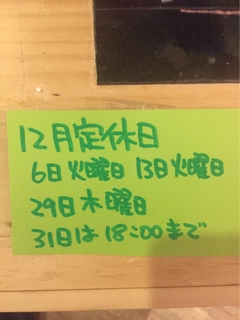 12月定休日
6日火曜日 13日火曜日
29日木曜日
31日は18:00まで